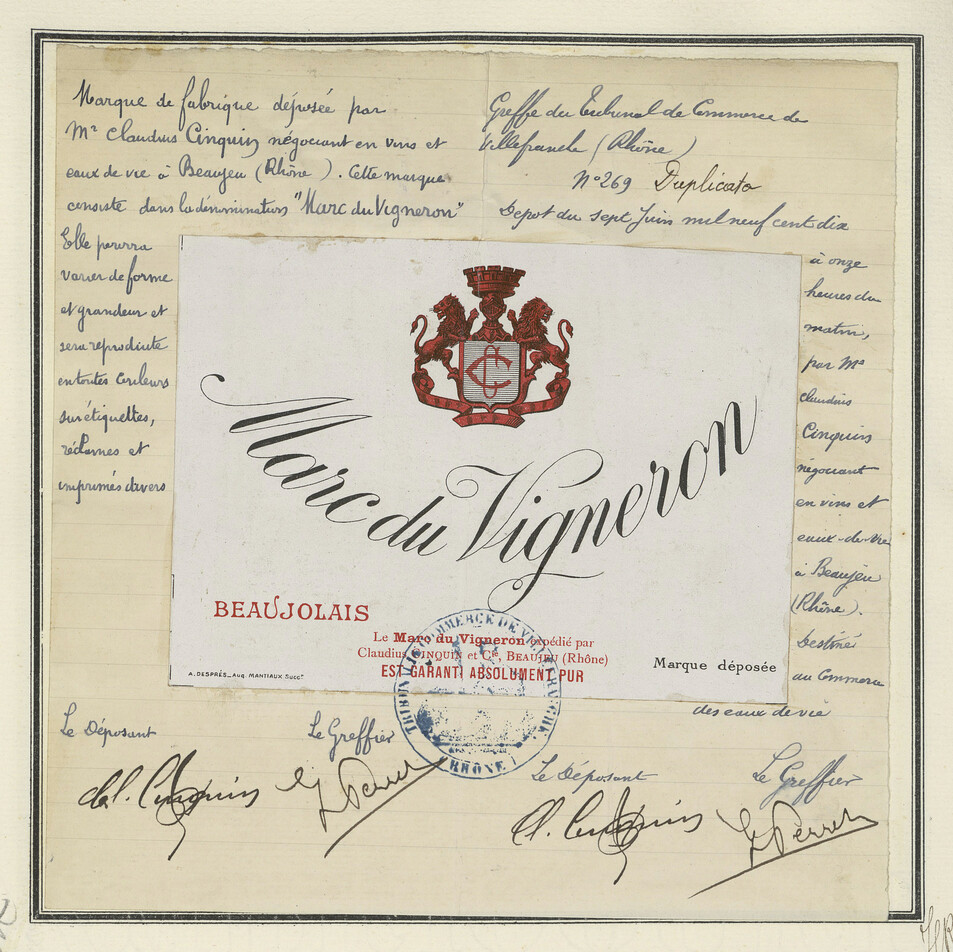 Marque de fabrique déposée par
Mr Claudius Cinquin négociant en vins et
eaux de vie à Beaujeu (Rhône). Cette marque
consiste dans la dénomination "Marc du Vigneron"
Elle pourra
varier de forme
et grandeur et
sera reproduite
en toutes couleurs
sur étiquettes,
réclames et
imprimés divers
Greffe du Tribunal de Commerce de
Villefranche (Rhône)
N° 269 Duplicata
Depot du sept Juin mil neuf cent dix
à onze
heures du
matin,
par Mr
Claudius
Cinquin
négociant
en vins et
eaux-de-vie
à Beaujeu
(Rhône).
Destiné
au Commerce
des eaux de vie
CC
Marc du Vigneron
BEAUJOLAIS
Le Marc du Vigneron expédié par
Claudius CINQUIN et Cie BEAUJEU (Rhône)
EST GARANTI ABSOLUMENT PUR
Marque déposée
A. DESPRÉS_ Aug. MANTIAUX Succr
TRIBUNAL DE COMMERCE DE VILLEFRANCHE
RHÔNE
Le Déposant
Le Greffier
Cl. Cinquin
Perret
Le Déposant
Le Greffier
Cl. Cinquin
Perret